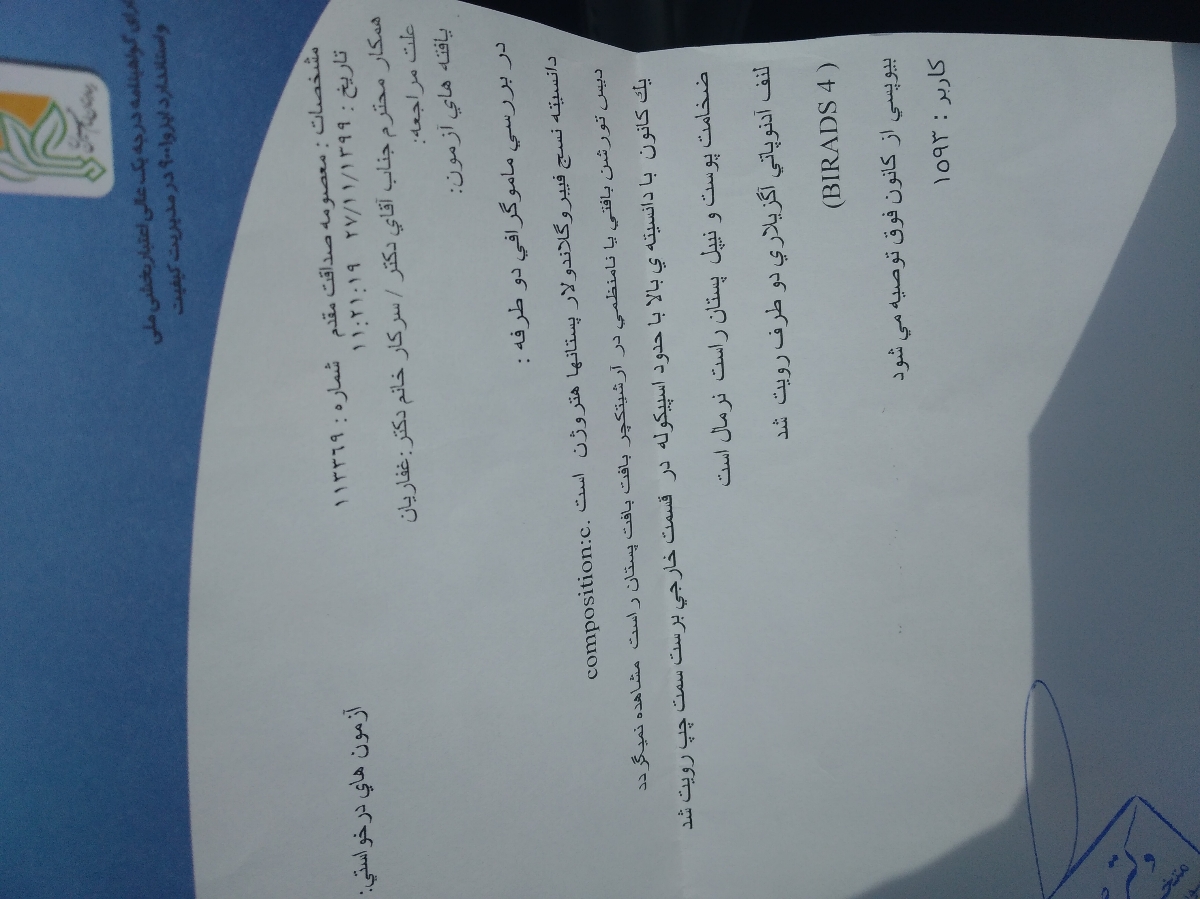 برای گواهینامه درجه یک عالی اعتباربخشی ملی
و استاندارد ایزو ۹۰۰۱ در مدیریت کیفیت
مشخصات : معصومه صداقت مقدم شماره : ۱۱۳۳۶۹
آزمون هاي درخواستي:
تاریخ : ۲۷/۱۱/۱۳۹۹ ۱۱:۲۱:۱۹
همکار محترم جناب آقاي دکتر / سرکار خانم دکتر :غفاریان
علت مراجعه:
یافته هاي آزمون:
در بررسي ماموگرافي دو طرفه :
دانسیته نسج فیبروگلاندولار پستانها هتروژن است .composition:c
دیس تورشن بافتي یا نامنظمي در آرشیتکچر بافت پستان راست مشاهده نمیگردد
یك کانون با دانسیته ي بالا با حدود اسپیکوله در قسمت خارجي برست سمت چپ رویت شد
ضخامت پوست و نیپل پستان راست نرمال است
لنف آدنوپاتي آگزیلاري دو طرف رویت شد
(BIRADS 4 )
بیوپسي از کانون فوق توصیه مي شود
کاربر : ۱۵۹۳